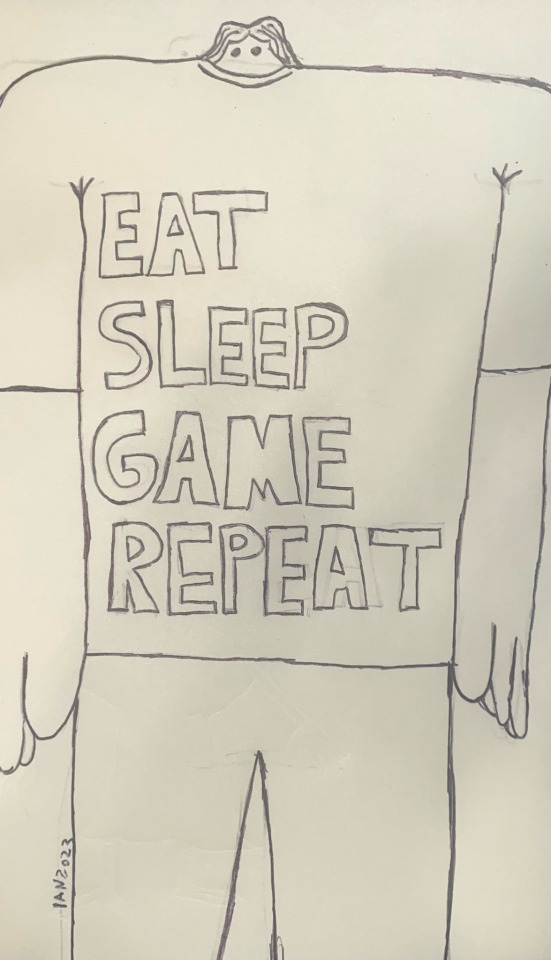 EAT
SLEEP
GAME
REPEAT
IAN2023